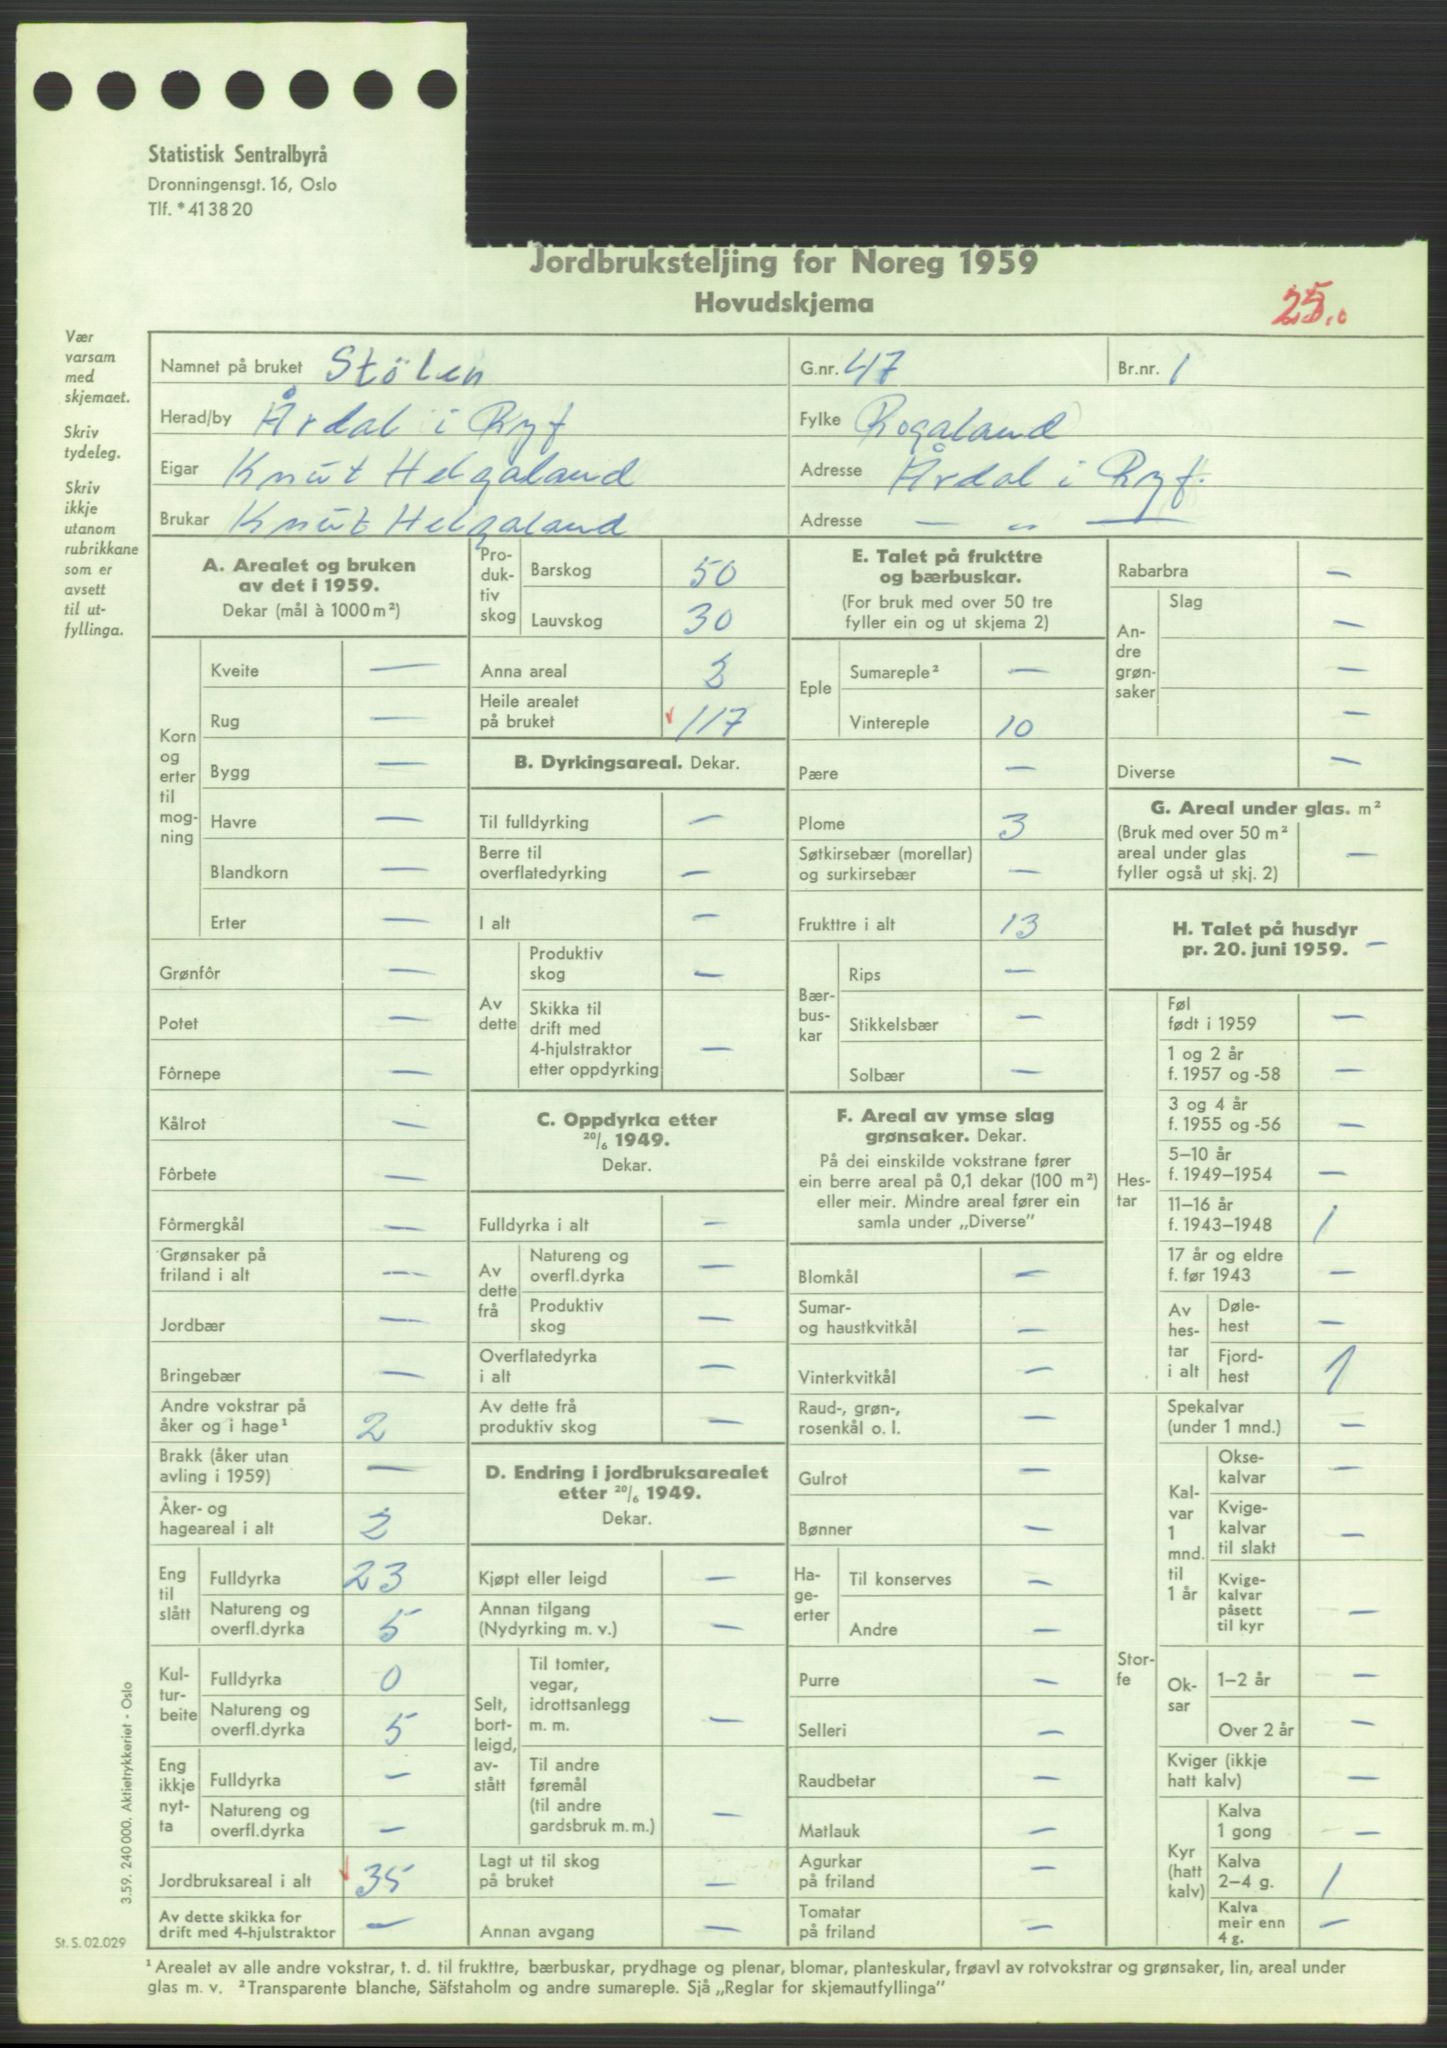 Statistisk Sentralbyrå
Dronningensgt. 16, Oslo
Tlf. *41 38 20
Jordbruksteljing for Noreg 1959
Hovudskjema
Vær
varsam
med
skjemaet.
Skriv
tydeleg.
Skriv
ikkje
utanom
rubrikkane
som er
avsett
til ut-
fyllinga.
Namnet på bruket Stölen G.nr. 47 Br.nr. 1
Herad/by Årdal i Ryf Fylke Rogaland
Eigar Knut Helgaland Adresse Årdal i Ryf.
Brukar Knut Helgaland Adresse — „ —
A. Arealet og bruken
av det i 1959.
Dekar (mål à 1000 m²)
Korn
og
erter
til
mog-
ning
Kveite —
Rug —
Bygg —
Havre —
Blandkorn —
Erter —
Grønfôr —
Potet —
Fôrnepe —
Kålrot —
Fôrbete —
Fôrmergkål —
Grønsaker på
friland i alt —
Jordbær —
Bringebær —
Andre vokstrar på
åker og i hage¹ 2
Brakk (åker utan
avling i 1959) —
Åker- og
hageareal i alt 2
Eng
til
slått
Fulldyrka 23
Natureng og
overfl.dyrka 5
Kul-
tur-
beite
Fulldyrka 0
Natureng og
overfl.dyrka 5
Eng
ikkje
nyt-
ta
Fulldyrka —
Natureng og
overfl.dyrka —
Jordbruksareal i alt 35
Av dette skikka for
drift med 4-hjulstraktor —
Pro-
duk-
tiv
skog
Barskog 50
Lauvskog 30
Anna areal 2
Heile arealet
på bruket 117
B. Dyrkingsareal. Dekar.
Til fulldyrking —
Berre til
overflatedyrking —
I alt —
Av
dette
Produktiv
skog —
Skikka til
drift med
4-hjulstraktor
etter oppdyrking —
C. Oppdyrka etter
20/6 1949.
Dekar.
Fulldyrka i alt —
Av
dette
frå
Natureng og
overfl.dyrka —
Produktiv
skog —
Overflatedyrka
i alt —
Av dette frå
produktiv skog —
D. Endring i jordbruksarealet
etter 20/6 1949.
Dekar.
Kjøpt eller leigd —
Annan tilgang
(Nydyrking m. v.) —
Selt,
bort-
leigd,
av-
stått
Til tomter,
vegar,
idrottsanlegg
m. m. —
Til andre
føremål
(til andre
gardsbruk m. m.) —
Lagt ut til skog
på bruket —
Annan avgang —
E. Talet på frukttre
og bærbuskar.
(For bruk med over 50 tre
fyller ein og ut skjema 2)
Eple
Sumareple² —
Vintereple 10
Pære —
Plome 3
Søtkirsebær (morellar)
og surkirsebær —
Frukttre i alt 13
Bær-
bus-
kar
Rips —
Stikkelsbær —
Solbær —
F. Areal av ymse slag
grønsaker. Dekar.
På dei einskilde vokstrane fører
ein berre areal på 0,1 dekar (100 m²)
eller meir. Mindre areal fører ein
samla under „Diverse”
Blomkål —
Sumar-
og haustkvitkål —
Vinterkvitkål —
Raud-, grøn-,
rosenkål o. l. —
Gulrot —
Bønner —
Ha-
ge-
erter
Til konserves —
Andre —
Purre —
Selleri —
Raudbetar —
Matlauk —
Agurkar
på friland —
Tomatar
på friland —
Rabarbra —
An-
dre
grøn-
saker
Slag
—
—
—
Diverse —
G. Areal under glas. m²
(Bruk med over 50 m²
areal under glas
fyller også ut skj. 2) —
H. Talet på husdyr
pr. 20. juni 1959. —
Hes-
tar
Føl
født i 1959 —
1 og 2 år
f. 1957 og -58 —
3 og 4 år
f. 1955 og -56 —
5–10 år
f. 1949–1954 —
11–16 år
f. 1943–1948 1
17 år og eldre
f. før 1943 —
Av
hes-
tar
i alt
Døle-
hest —
Fjord-
hest 1
Stor-
fe
Spekalvar
(under 1 mnd.) —
Kal-
var
1
mnd.
til
1 år
Okse-
kalvar —
Kvige-
kalvar
til slakt —
Kvige-
kalvar
påsett
til kyr —
Ok-
sar
1–2 år —
Over 2 år —
Kviger (ikkje
hatt kalv) —
Kyr
(hatt
kalv)
Kalva
1 gong —
Kalva
2–4 g. 1
Kalva
meir enn
4 g. —
3.59. 240 000. Aktietrykkeriet - Oslo
St. S. 02.029
¹ Arealet av alle andre vokstrar, t. d. til frukttre, bærbuskar, prydhage og plenar, blomar, planteskular, frøavl av rotvokstrar og grønsaker, lin, areal under
glas m. v. ² Transparente blanche, Säfstaholm og andre sumareple. Sjå „Reglar for skjemautfyllinga”